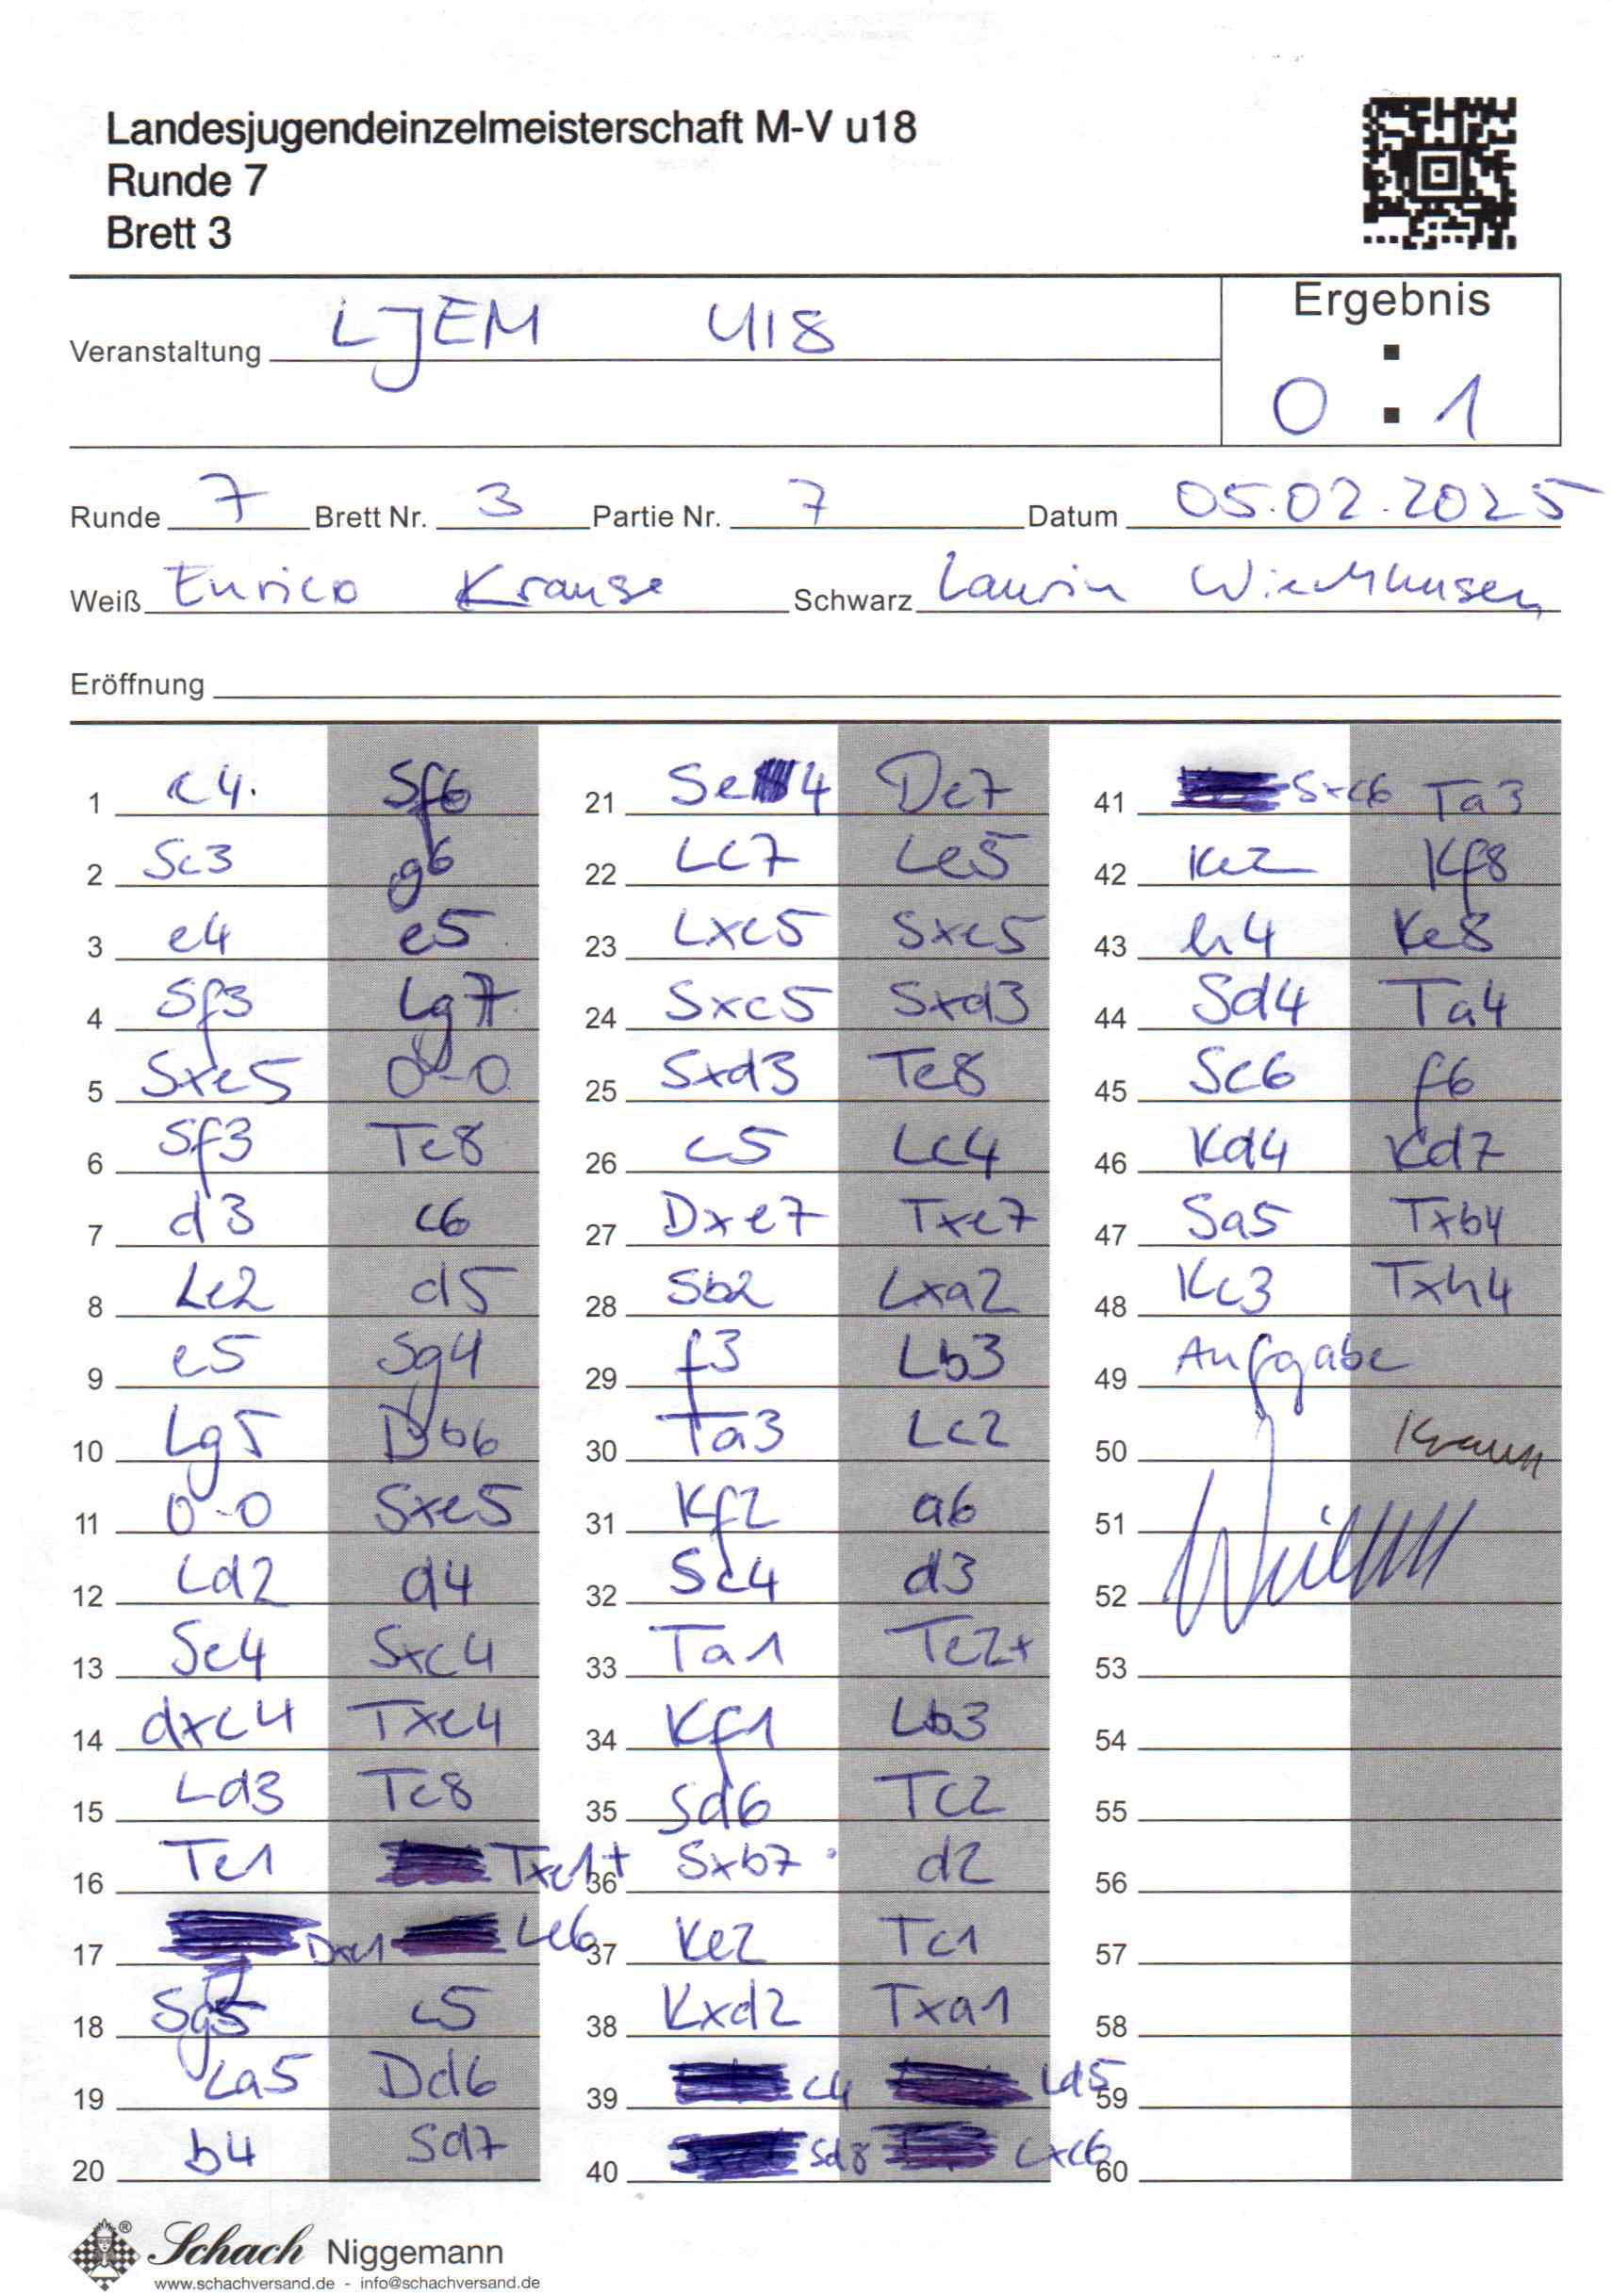 Landesjugendeinzelmeisterschaft M-V u18
Runde 7
Brett 3
Ergebnis
Veranstaltung LJEM U18
0 : 1
Runde 7 Brett Nr. 3 Partie Nr. 7 Datum 05.02.2025
Weiß Enrico Krause Schwarz Laurin
Eröffnung
1 c4. Sf6
2 Sc3 g6
3 e4 e5
4 Sf3 Lg7
5 Sxe5 0-0
6 Sf3 Te8
7 d3 c6
8 Le2 d5
9 e5 Sg4
10 Lg5 Db6
11 0-0 Sxe5
12 Ld2 d4
13 Se4 Sxc4
14 dxc4 Txe4
15 Ld3 Te8
16 Te1 Txe1+
17 Dxe1 Le6
18 Sg5 c5
19 La5 Dd6
20 b4 Sd7
21 Se4 De7
22 Lc7 Le5
23 Lxe5 Sxe5
24 Sxc5 Sxd3
25 Sxd3 Te8
26 c5 Lc4
27 Dxe7 Txe7
28 Sb2 Lxa2
29 f3 Lb3
30 Ta3 Lc2
31 Kf2 a6
32 Sc4 d3
33 Ta1 Te2+
34 Kf1 Lb3
35 Sd6 Tc2
36 Sxb7 d2
37 Ke2 Tc1
38 Kxd2 Txa1
39 c6 Ld5
40 Sd8 Lxc6
41 Sxc6 Ta3
42 Ke2 Kf8
43 h4 Ke8
44 Sd4 Ta4
45 Sc6 f6
46 Kd4 Kd7
47 Sa5 Txb4
48 Kc3 Txh4
49 Aufgabe
50 Krause
51
52
53
54
55
56
57
58
59
60
Schach Niggemann
www.schachversand.de - info@schachversand.de